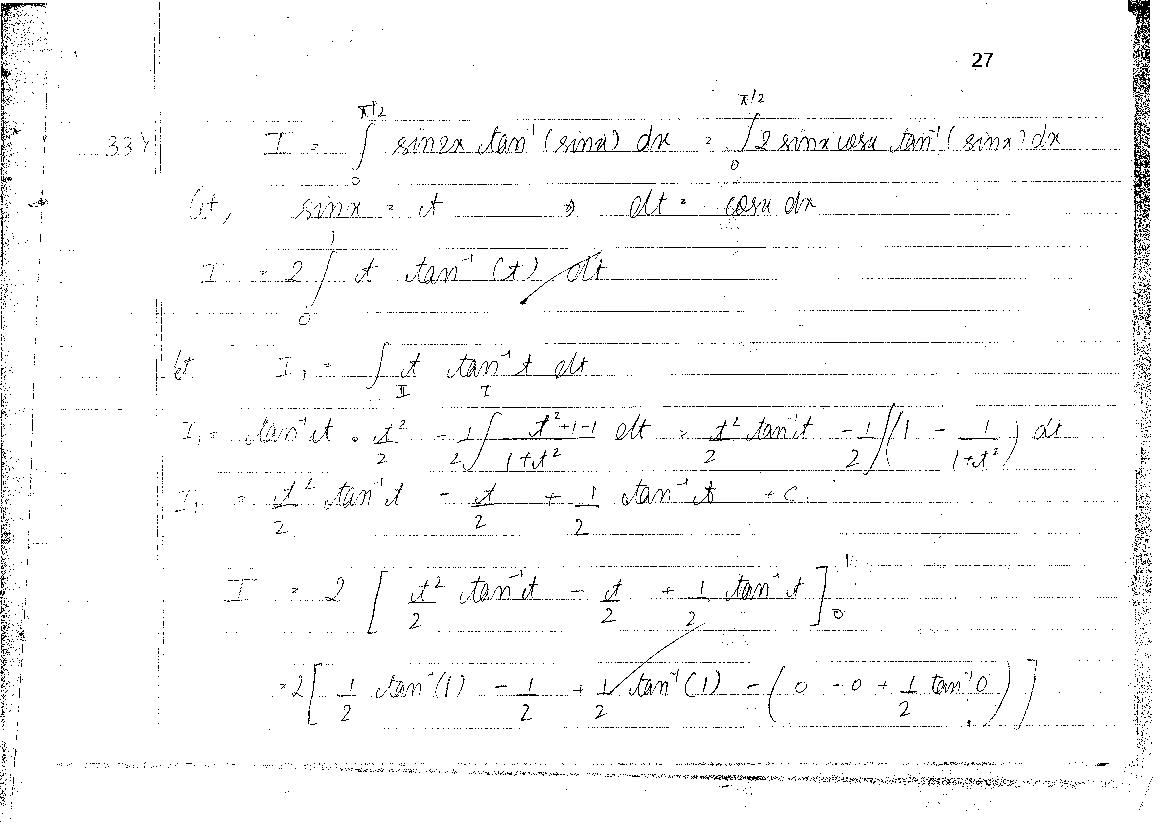 27
33) I = ∫₀^{π/2} sin2x tan⁻¹(sinx) dx = ∫₀^{π/2} 2 sinx cosx tan⁻¹(sinx) dx
let, sinx = t ⇒ dt = cosx dx
I = 2 ∫₀^1 t tan⁻¹(t) dt
let I₁ = ∫ t tan⁻¹t dt
II I
I₁ = tan⁻¹t · t²/2 - 1/2 ∫ (t²+1-1)/(1+t²) dt = t²/2 tan⁻¹t - 1/2 ∫(1 - 1/(1+t²)) dt
I₁ = t²/2 tan⁻¹t - t/2 + 1/2 tan⁻¹t + c
I = 2 [ t²/2 tan⁻¹t - t/2 + 1/2 tan⁻¹t ]₀^1
= 2 [ 1/2 tan⁻¹(1) - 1/2 + 1/2 tan⁻¹(1) - ( 0 - 0 + 1/2 tan⁻¹0 ) ]